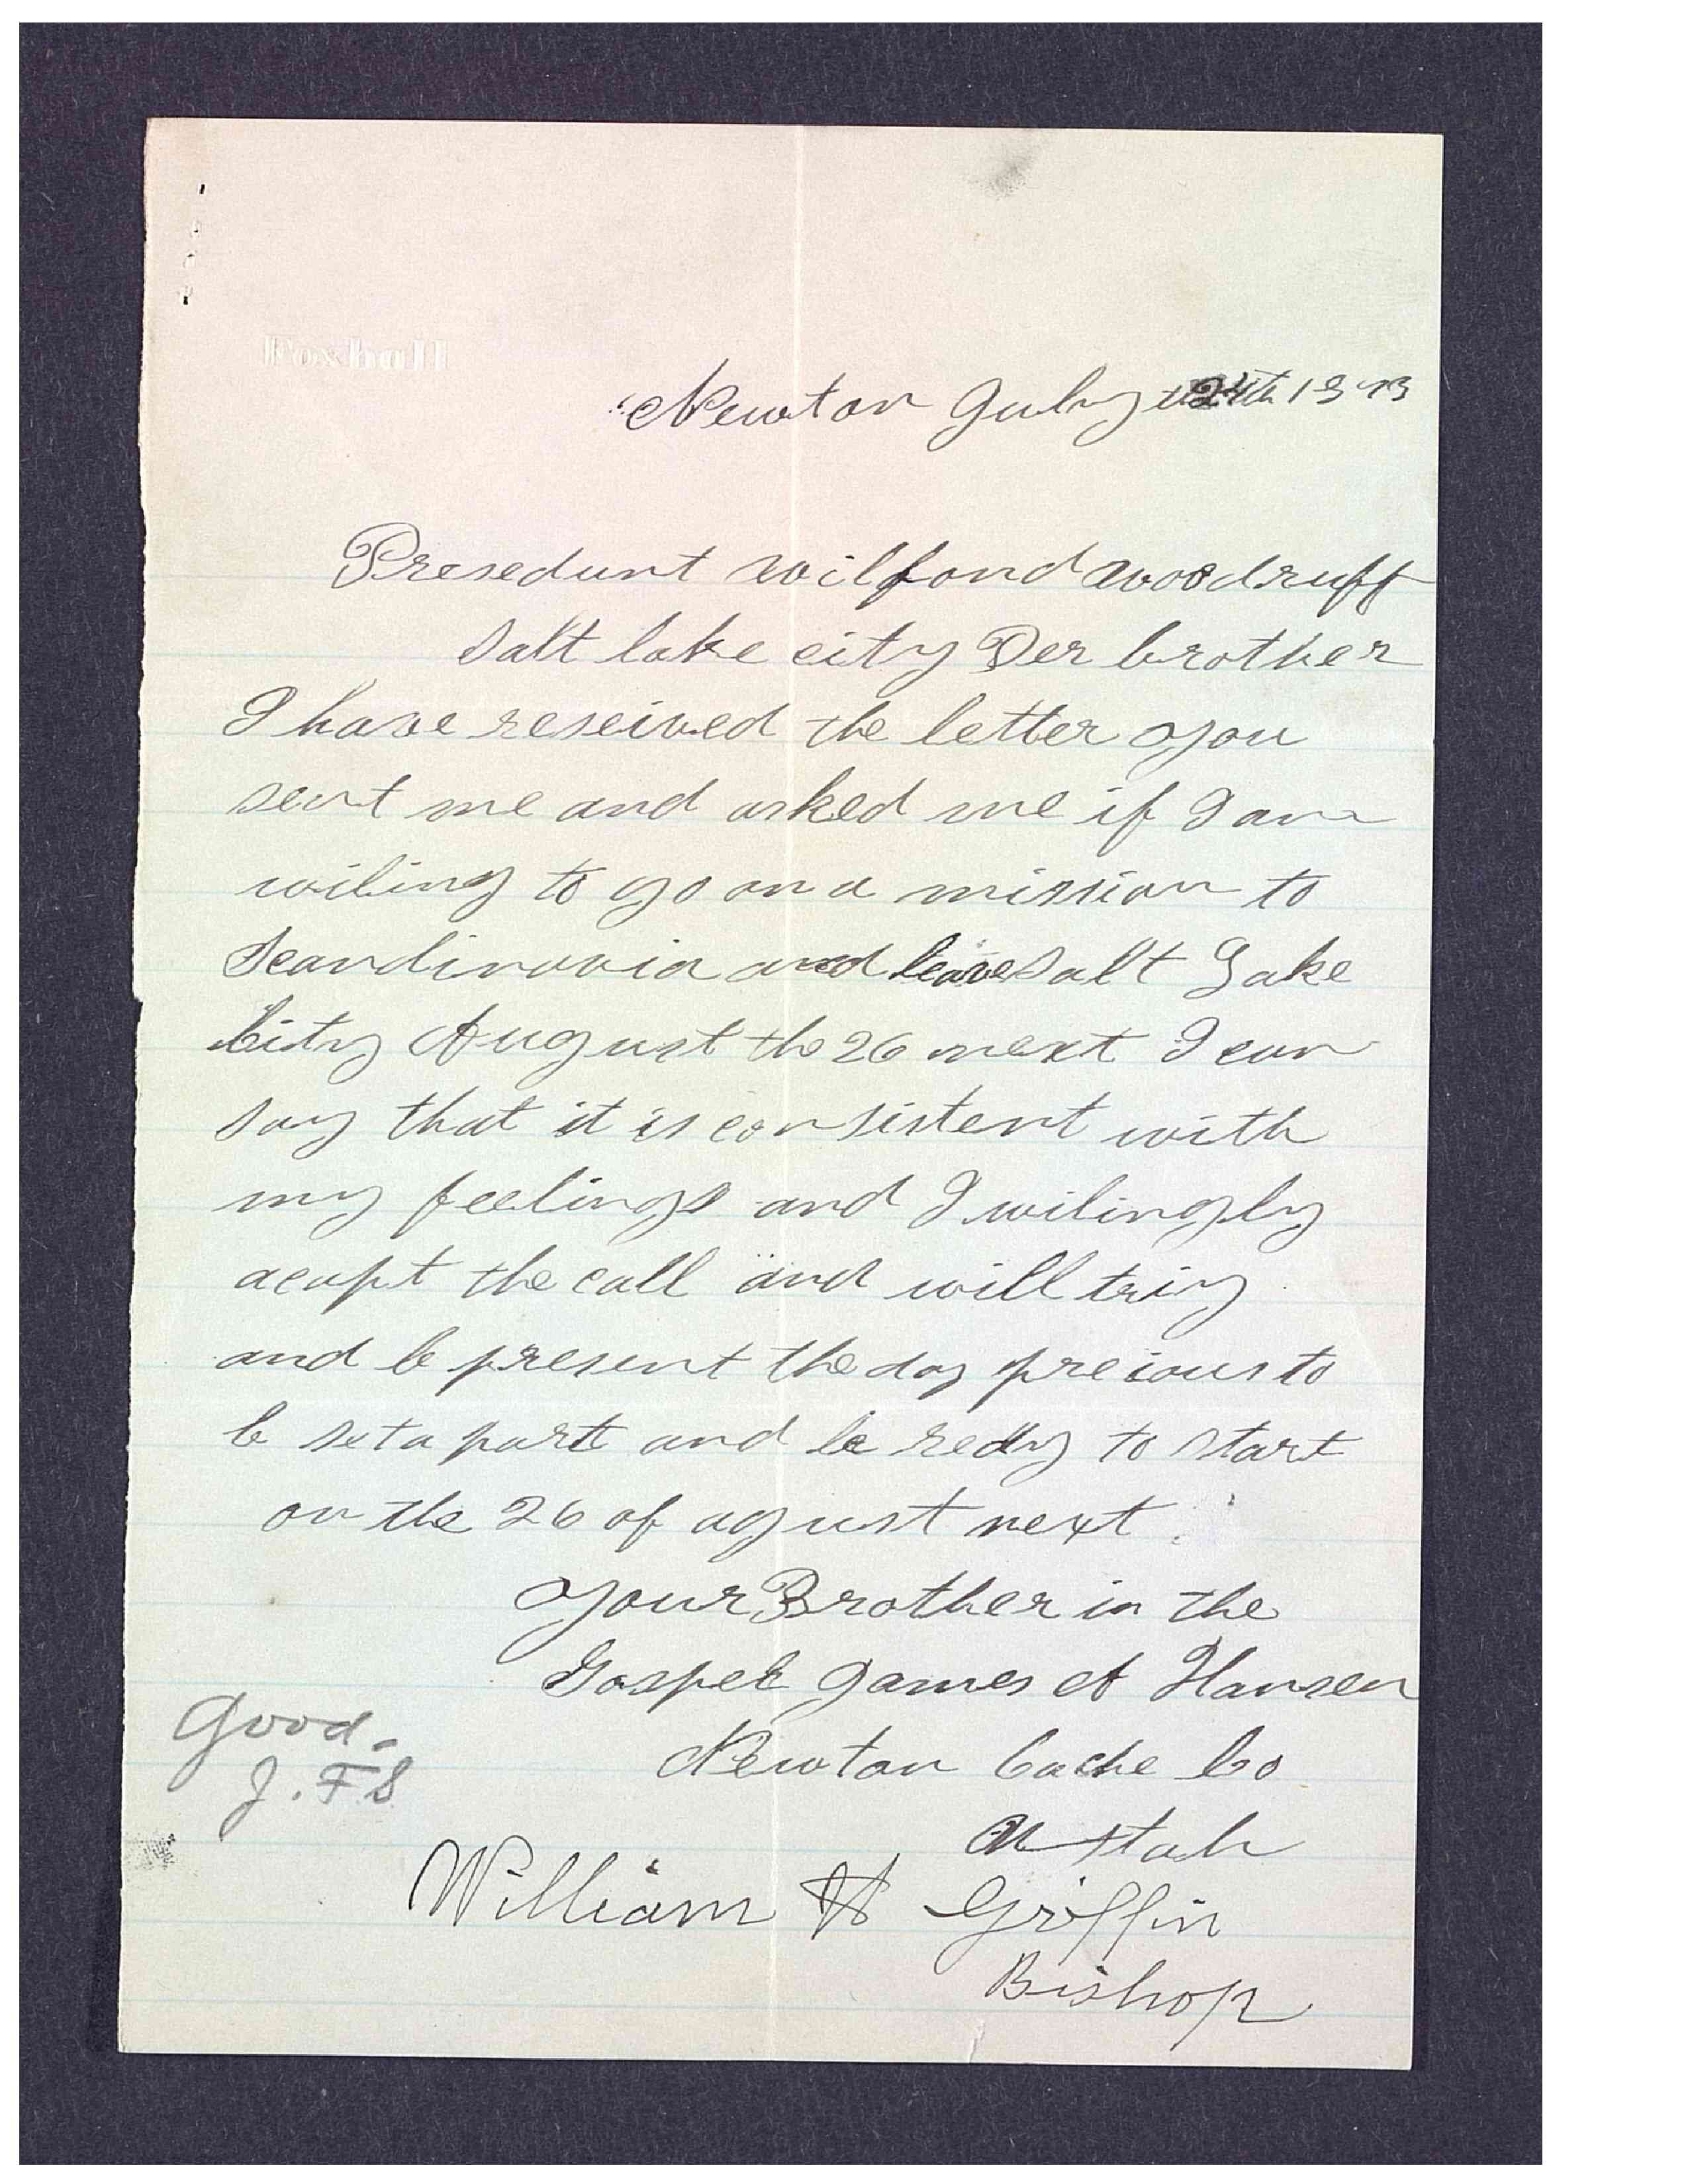 Foxhall
Newton July 24th 1893
Presedunt wilford woodruff
salt lake city Der brother
I have reseived the letter you
sent me and asked me if I am
wiling to go on a mission to
Scandinavia and leave Salt Lake
City August the 26 next I can
say that it is consistent with
my feelings and I wilingly
acapt the call and will triy
and be present the day previous to
be set a part and be redy to start
on the 26 of agust next.
your Brother in the
Gospel James A Hansen
Newton Cache Co
Utah
Good.
J. F S
William H Griffin
Bishop